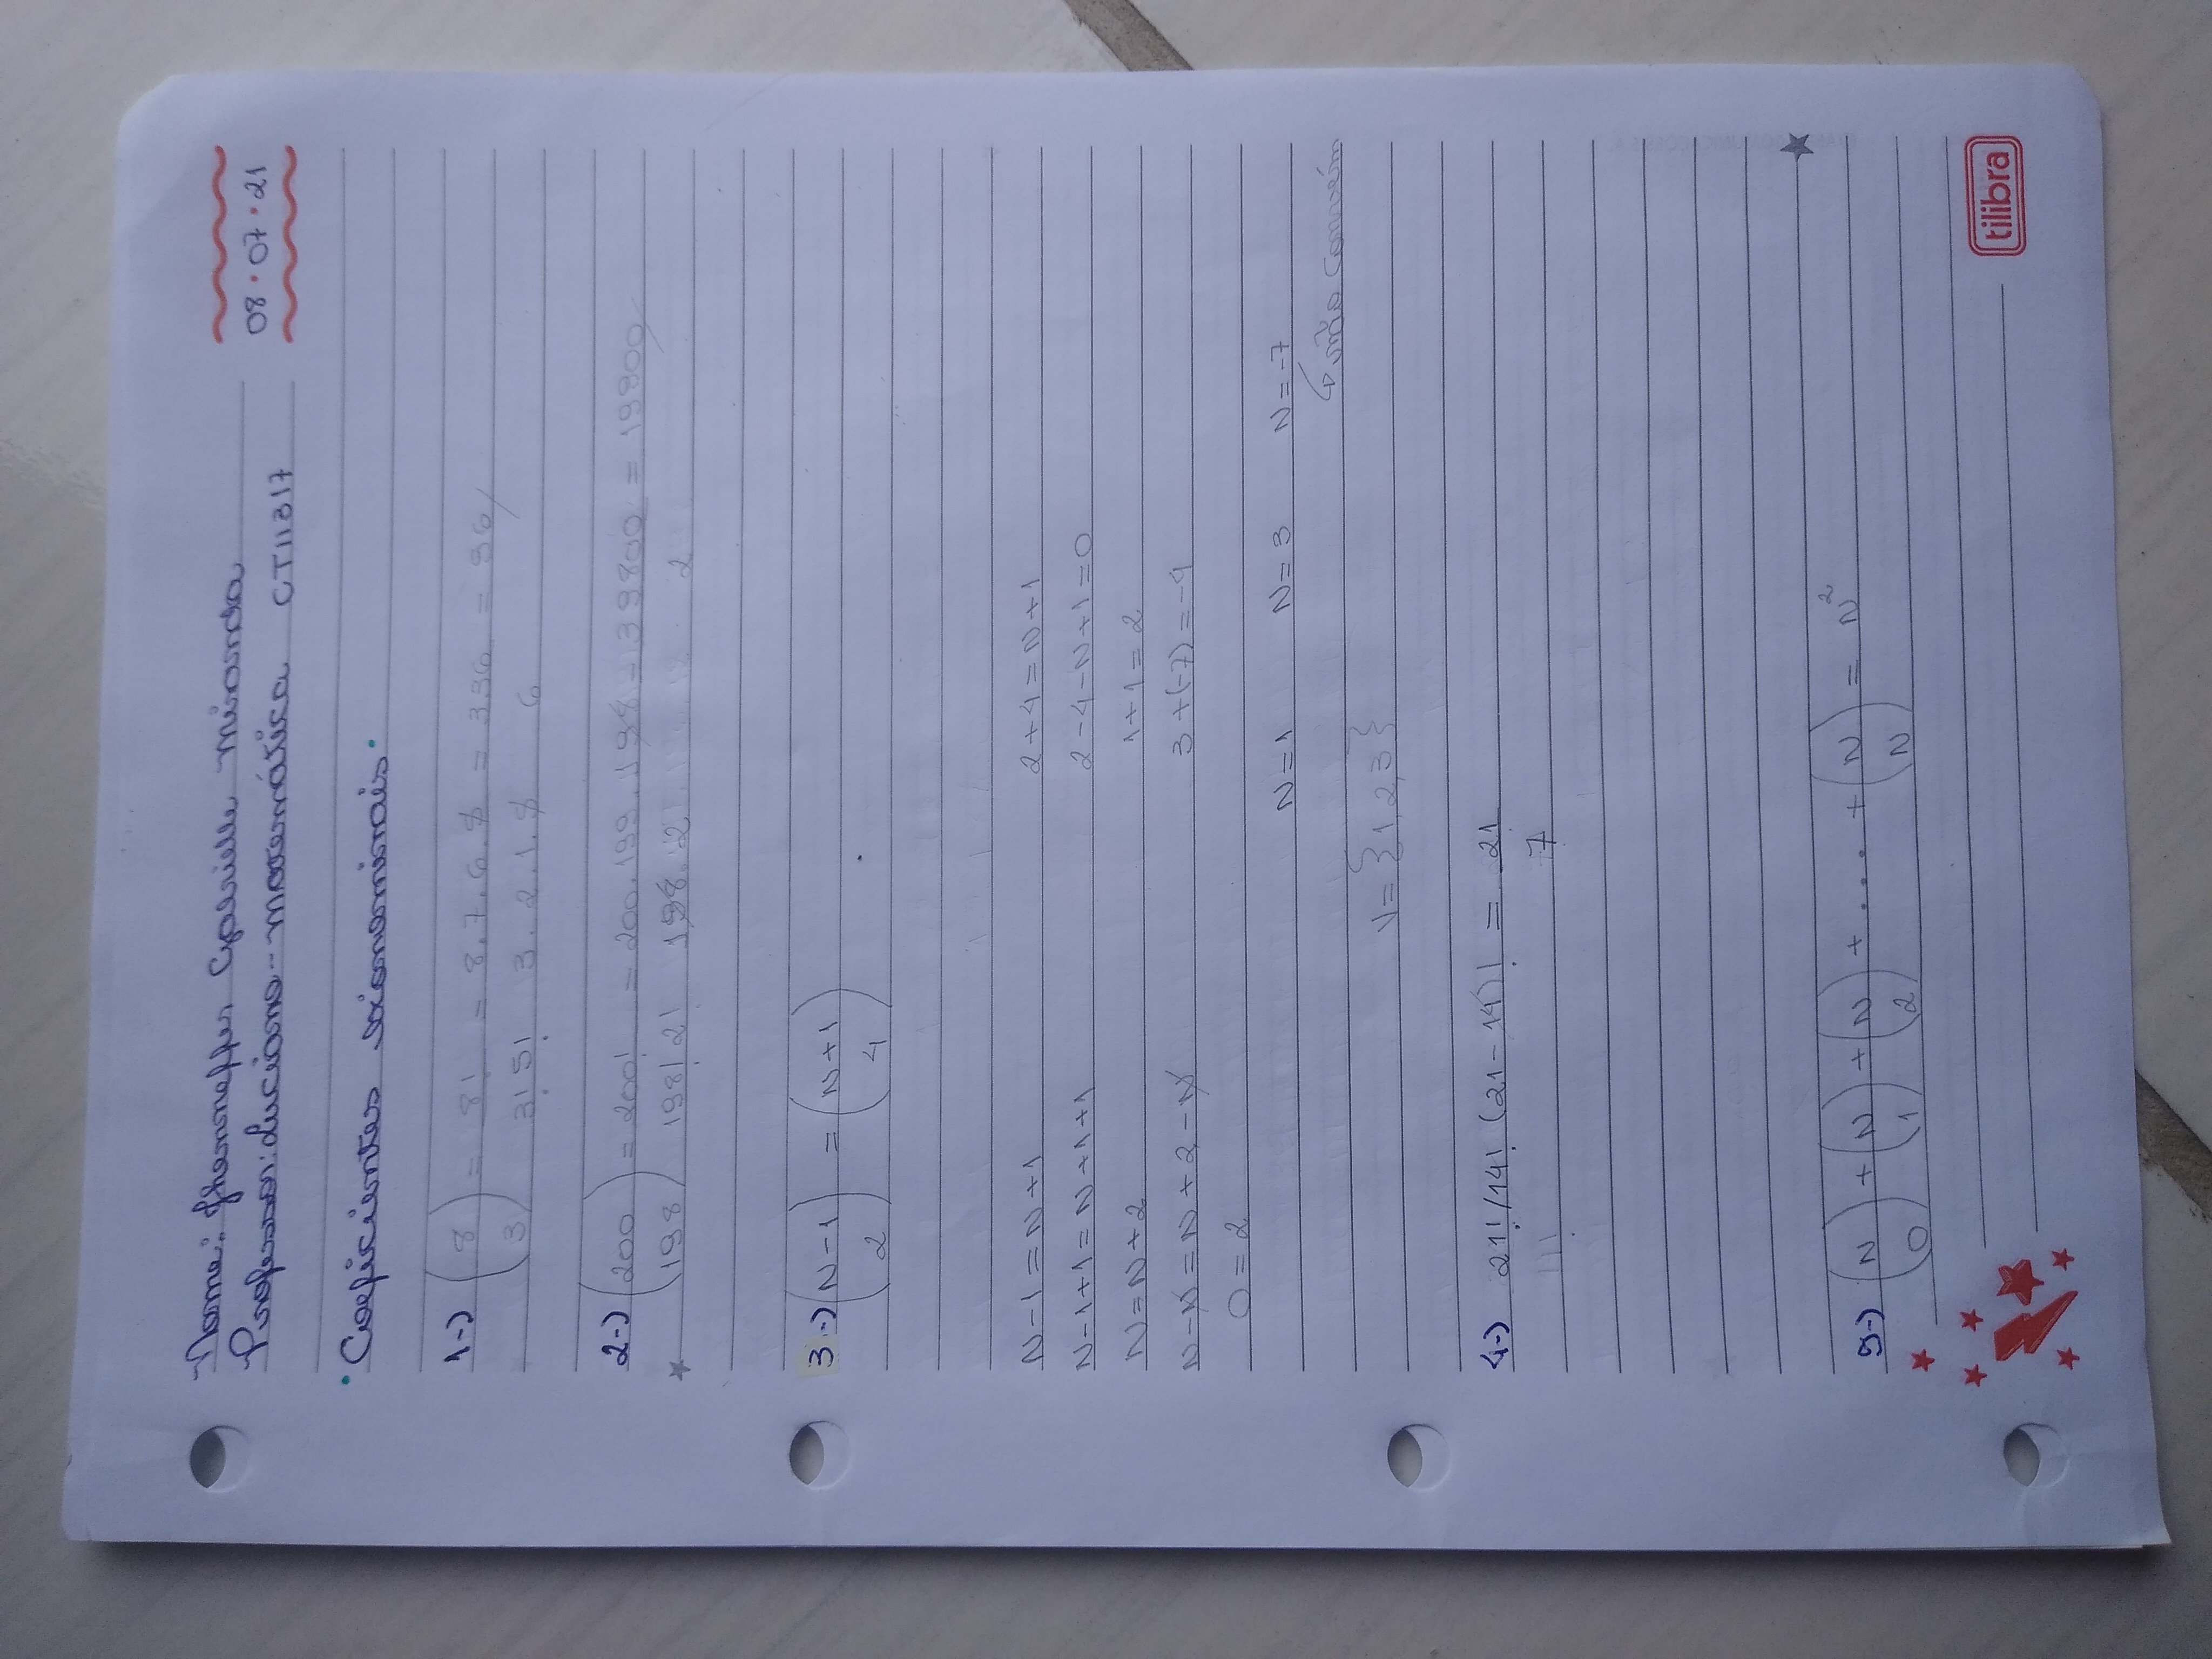 Nome: Jhenneffer Gabrielle Miranda
Professor: Luciano - matemática CT11317
08.07.21
Coeficientes bionominais
1-) (8 3) = 8!/3!5! = 8.7.6.5/3.2.1.5 = 336/6 = 56
2-) (200 198) = 200!/198!2! = 200.199.198/198.2 = 39800/2 = 19900
3-) (N-1 2) = (N+1 4)
N-1=N+1 2+4=N+1
N-1+1=N+1+1 2-4-N+1=0
N=N+2 1+1=2
N-N=N+2-N 3+(-7)=-4
0=2
N=1 N=3 N=-7
↳ não convém
V={1,2,3}
4-) 21!/14! (21-14)! = 21/7
5-) (N 0) + (N 1) + (N 2) + ... + (N N) = N²
tilibra